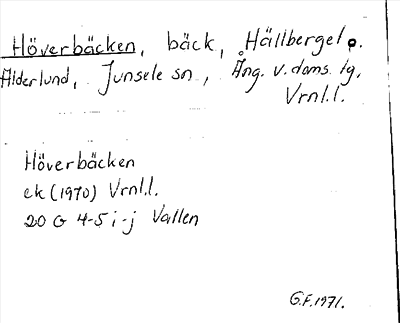 Höverbäcken, bäck, Hällberget o.
Alderlund, Junsele sn, Ång. v. doms. lg,
Vrnl.l.
Höverbäcken
ek (1970) Vrnl.l.
20 G 4-5 i-j Vallen
G.F. 1971.